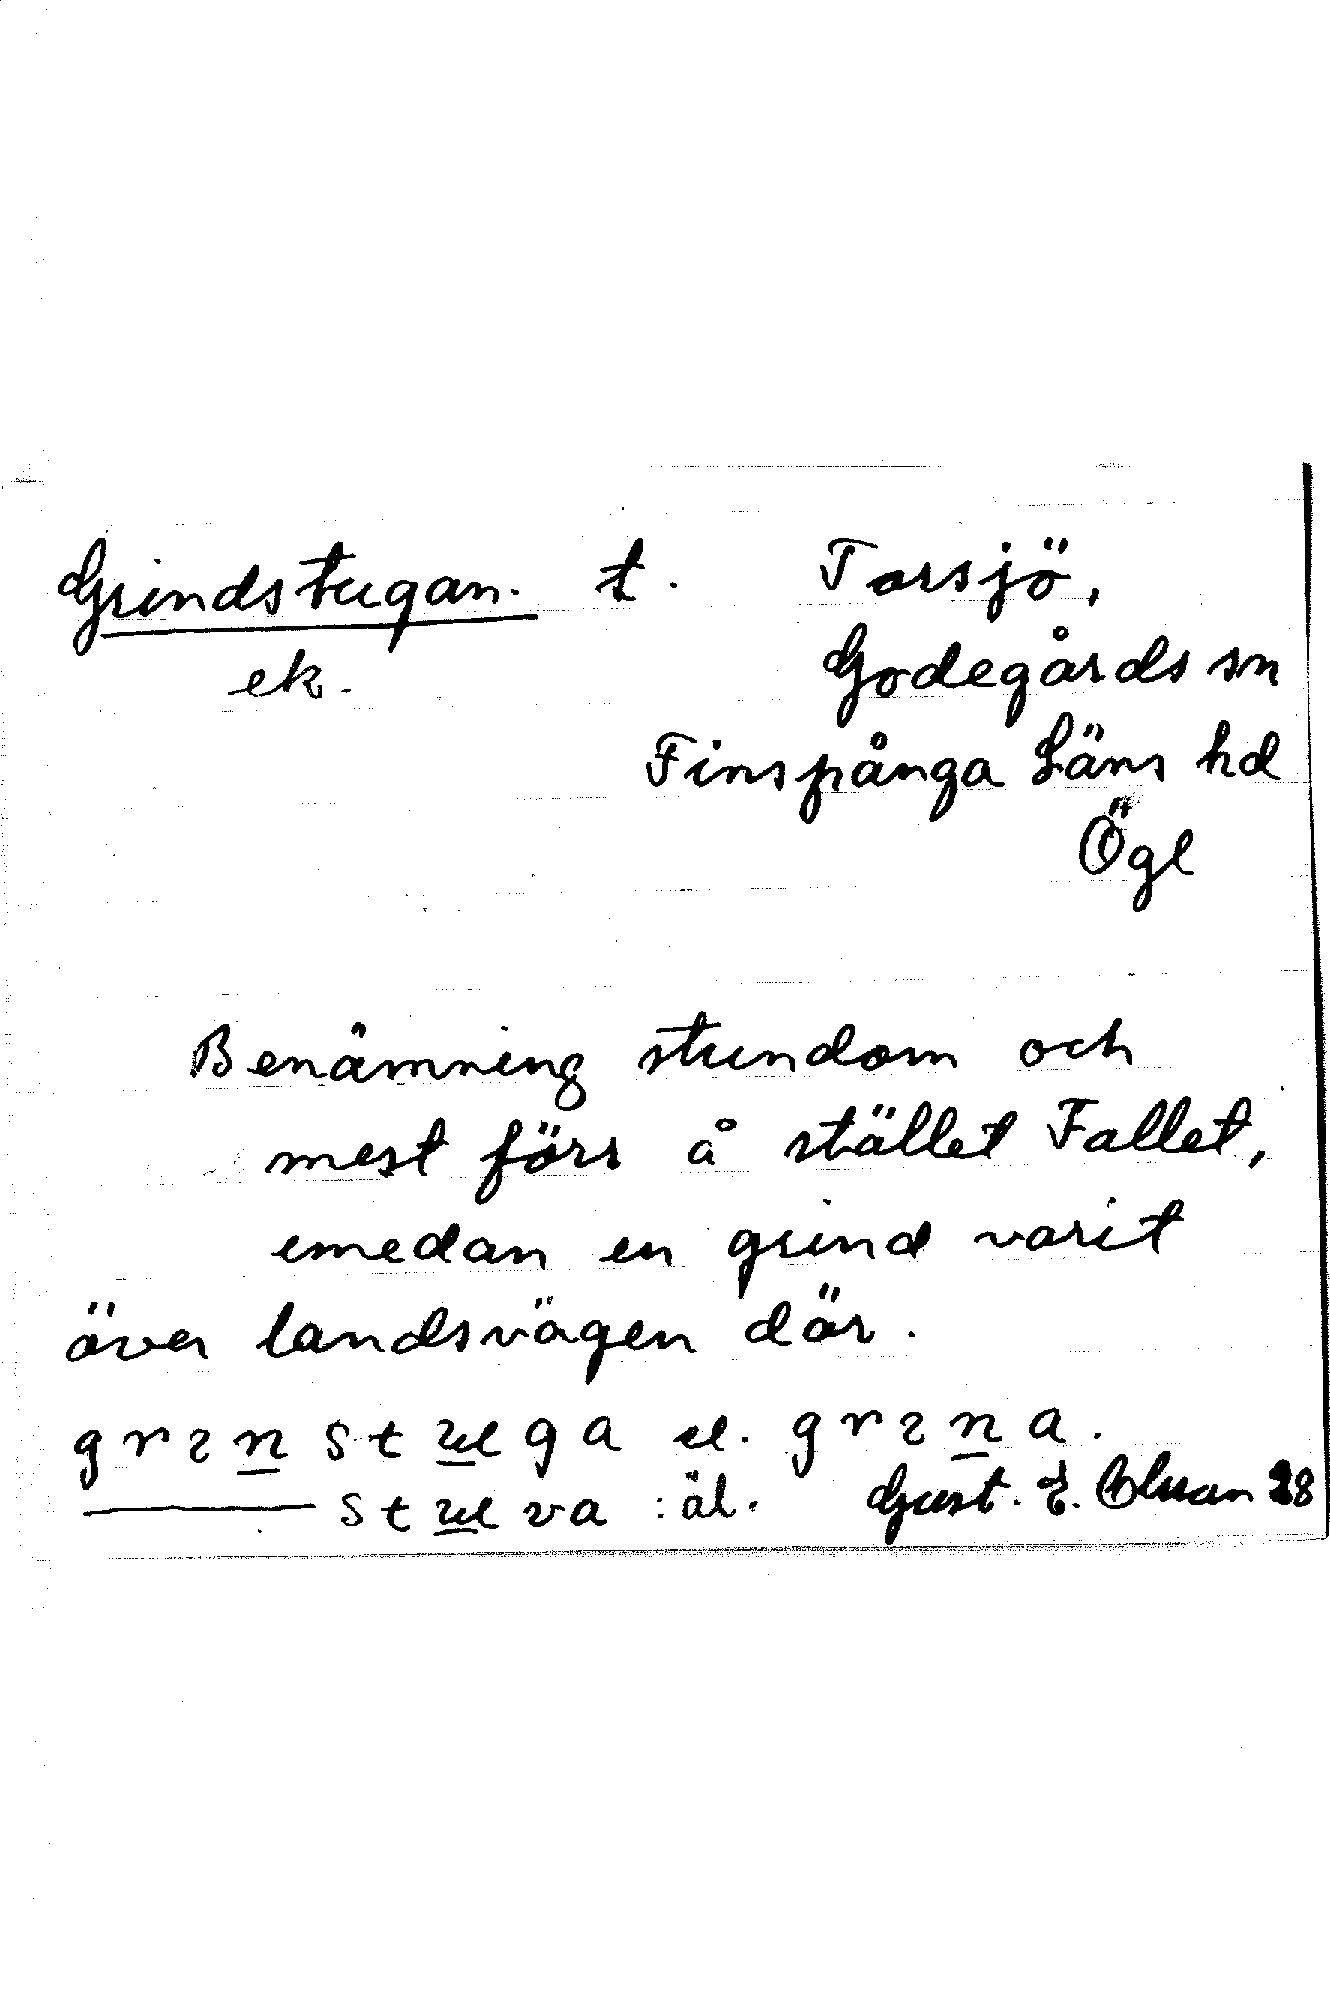 Grindstugan. t. Torsjö,
ek. Godegårds sn
Finspånga Läns hd
Ögl
Benämning stundom och
mest förr å stället Fallet,
emedan en grind varit
över landsvägen där.
grınstuga el. grına.
——— stuva : äl. Gust. E. Olsson 28